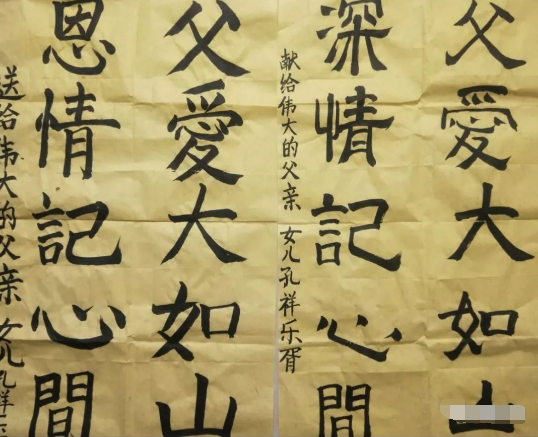 父愛大如山
深情記心間
献给伟大的父亲 女儿孔祥乐胥
父愛大如山
恩情記心間
送给伟大的父亲 女儿孔祥